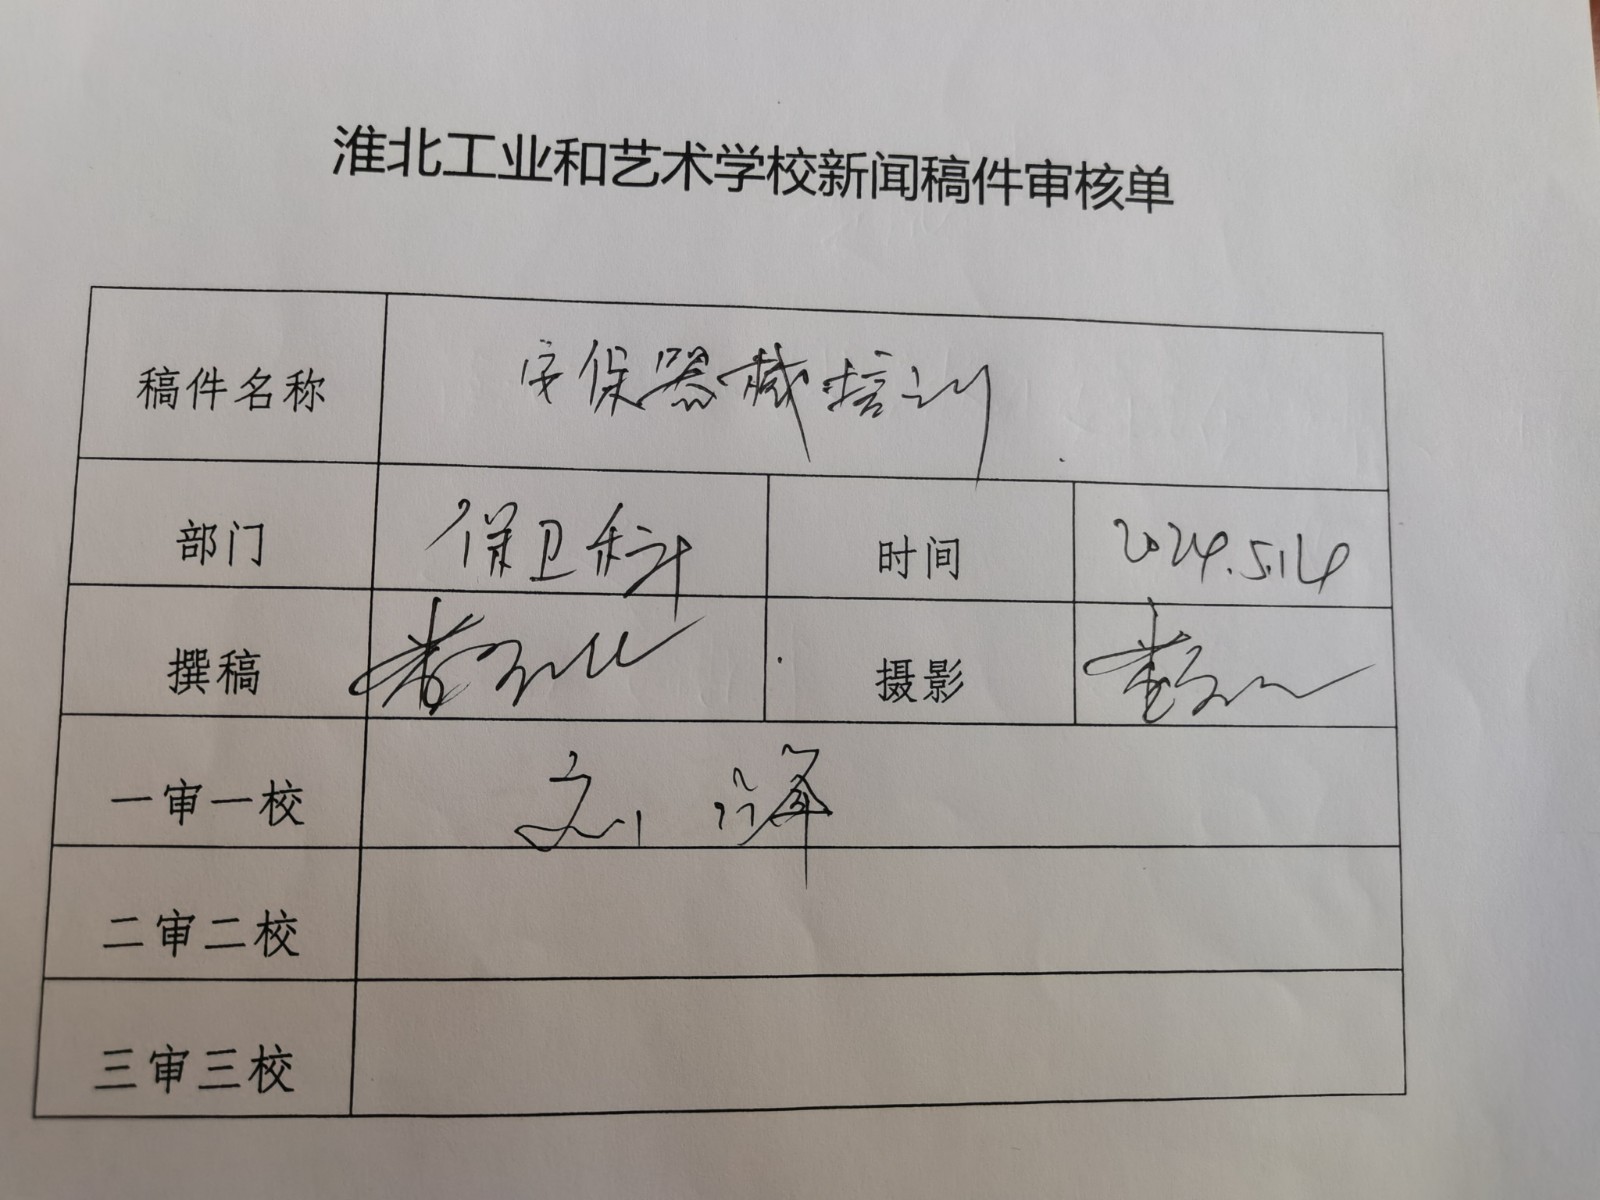 淮北工业和艺术学校新闻稿件审核单
稿件名称 安保器械培训
部门 保卫科 时间 2024.5.14
撰稿 摄影
一审一校 刘 泽
二审二校
三审三校